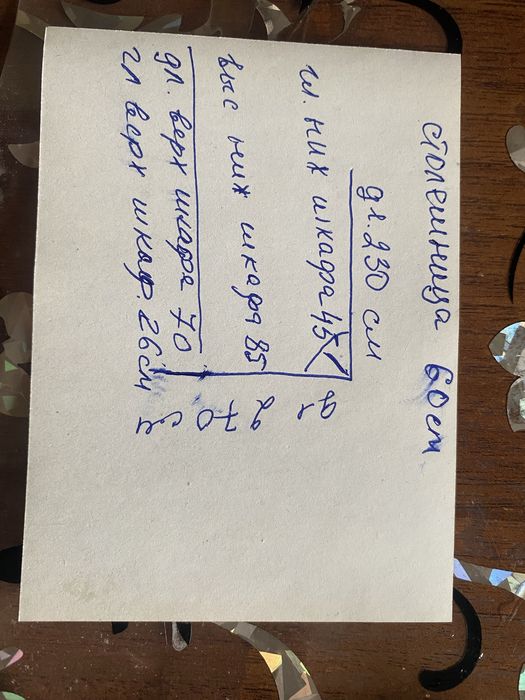 столешница 60см
дл. 230 см
гл. них шкафа 45
выс них шкафа 85
дл. верх шкафа 70
гл верх шкаф. 26см
70